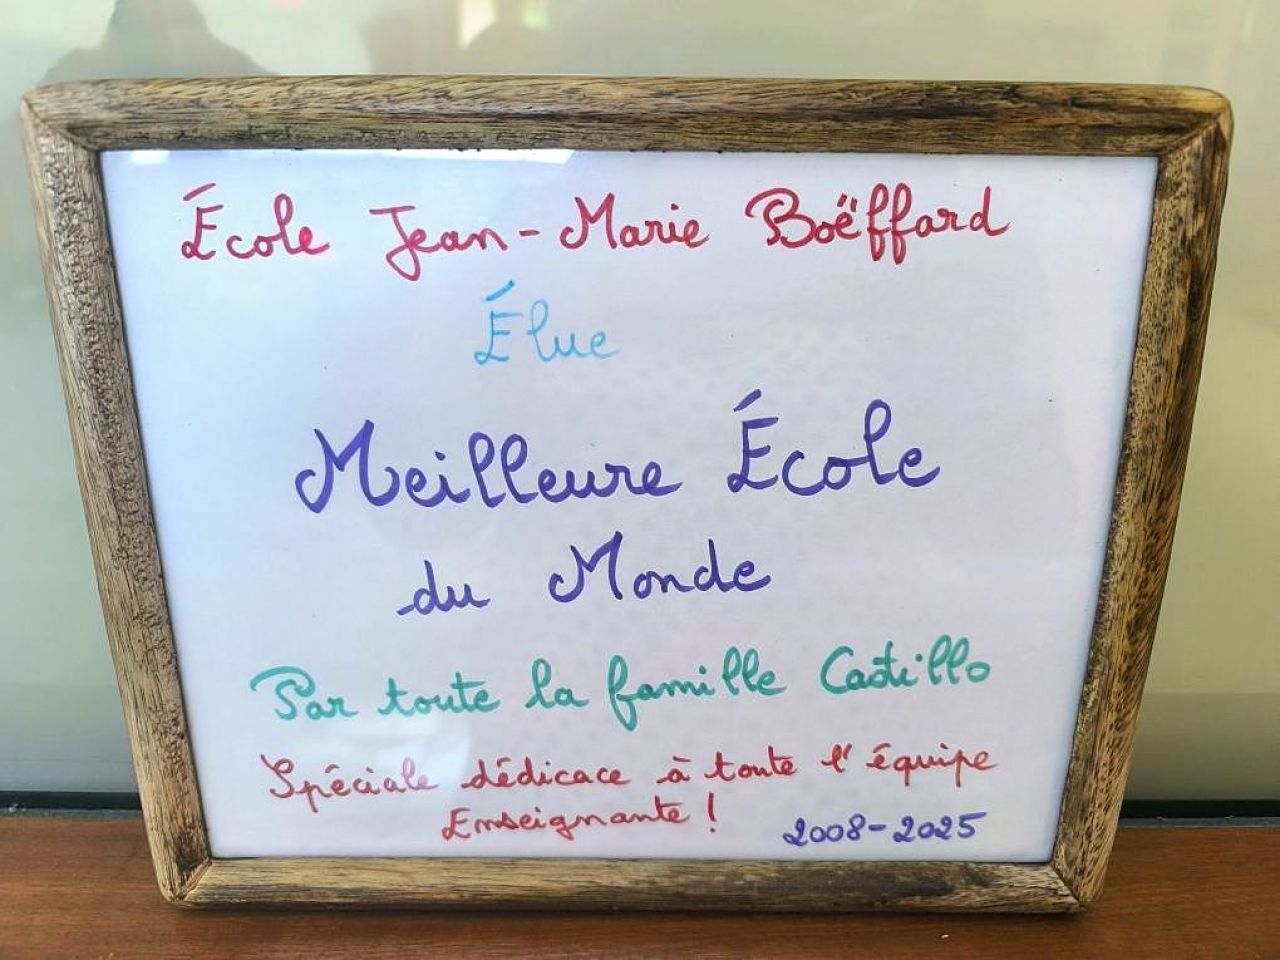 École Jean-Marie Boëffard
Élue
Meilleure École
du Monde
Par toute la famille Castillo
Spéciale dédicace à toute l'équipe
Enseignante !
2008-2025